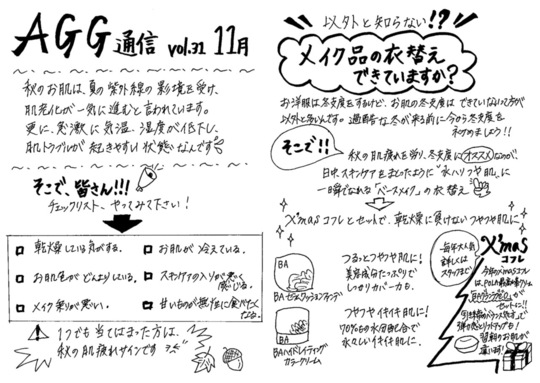 AGG通信 vol.31 11月
秋のお肌は、夏の紫外線の影響を受け、
肌老化が一気に進むと言われています。
更に、急激に気温、湿度が低下し、
肌トラブルが起きやすい状態なんです
そこで、皆さん!!!
チェックリスト、やってみて下さい!
乾燥している気がする。
お肌が冷えている。
お肌色がどんよりしている。
スキンケアの入りが悪く感じる。
メイク乗りが悪い。
甘いものが無性に食べたくなる。
1つでも当てはまった方は、
秋の肌疲れサインです
以外と知らない!?
メイク品の衣替え
できていますか?
お洋服は冬支度をするけど、お肌の冬支度はできていないって方が
以外と多いんです。過酷な冬が来る前に今から冬支度を
始めましょう!!
そこで!!
秋の肌疲れを労り、冬支度にオススメなのが
日中、スキンケアをまとったように"水ハリつや肌"に
一瞬でなれる「ベースメイク」の衣替え
X'masコフレとセットで、乾燥に負けないツヤツヤ肌に
BA
BAセラムクッションファンデ
つるっとツヤツヤ肌に!
美容成分たっぷりで
しっかりカバー力も。
BA
BAハイドレイティング
カラークリーム
ツヤツヤイキイキ肌に!
70%もの水分配合で
水々しいイキイキ肌に。
毎年大人気
詳しくは
スタッフまで
X'mas
コフレ
今年のX'masコフレ
は、POLA最高峰クリーム
BAグランラグゼⅢが
セットに!!
弾力感とリフトアップも!
翌朝のお肌が
違います!